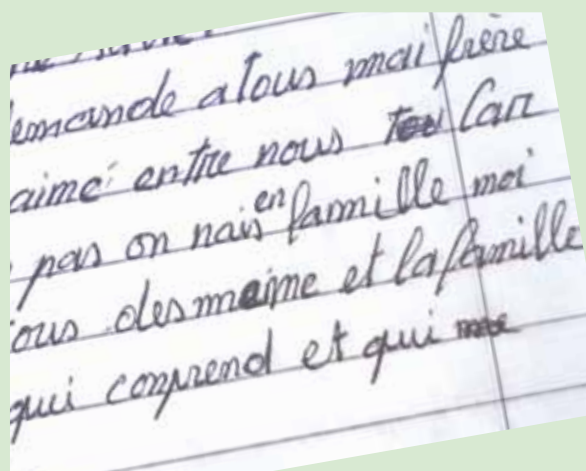 emande a tous mai frère
aimé entre nous Car
pas on nais en famille moi
ous des meime et la famille
qui comprend et qui